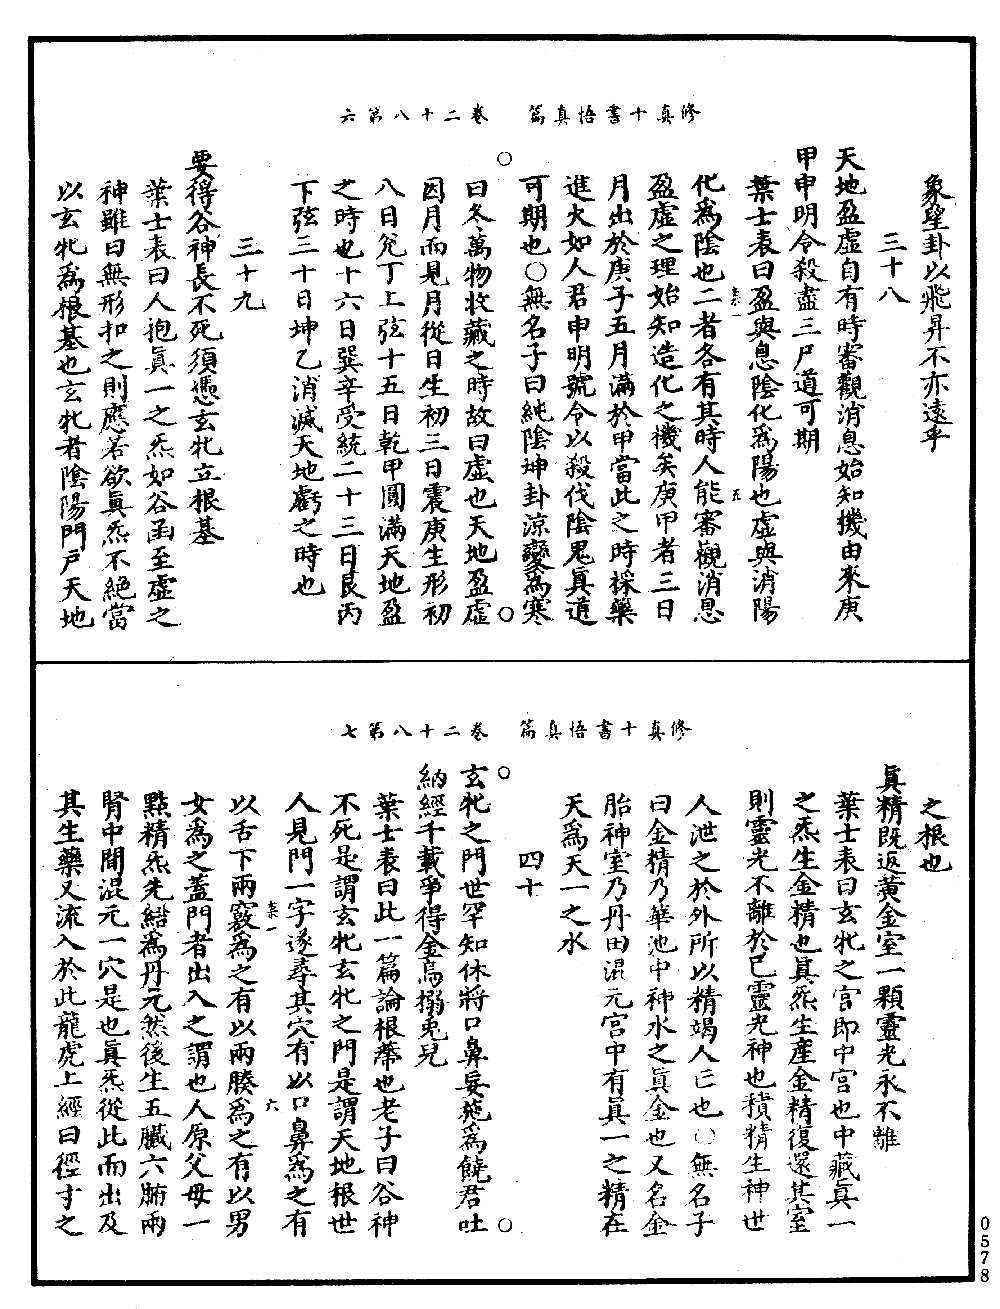 修真十書悟真篇　卷二十八第六
象壁卦以飛昇不亦遠乎
三十八
天地盈虛自有時審觀消息始知機由來庚
甲申明令殺盡三尸道可期
葉士表曰盈與息陰化爲陽也虛與消陽
化爲陰也二者各有其時人能審觀消息
盈虛之理始知造化之機矣庚甲者三日
月出於庚子五月滿於甲當此之時採藥
進火如人君申明號令以殺伐陰鬼眞道
可期也○無名子曰純陰坤卦涼變爲寒
曰冬萬物收藏之時故曰虛也天地盈虛
因月而見月從日生初三日震庚生形初
八日兌丁上弦十五日乾甲圓滿天地盈
之時也十六日巽辛受統二十三日艮丙
下弦三十日坤乙消滅天地虧之時也
三十九
要得谷神長不死須憑玄牝立根基
葉士表曰人抱眞一之炁如谷函至虛之
神雖曰無形扣之則應若欲眞炁不絕當
以玄牝爲根基也玄牝者陰陽門戶天地
修真十書悟真篇　卷二十八第七
之根也
眞精旣返黃金室一顆靈光永不離
葉士表曰玄牝之宮卽中宮也中藏眞一
之炁生金精也眞炁生產金精復還其室
則靈光不離於己靈光神也積精生神世
人泄之於外所以精竭人亡也○無名子
曰金精乃華池中神水之眞金也又名金
胎神室乃丹田混元宮中有眞一之精在
天爲天一之水
四十
玄牝之門世罕知休將口鼻妄施爲饒君吐
納經千載爭得金烏搦兎兒
葉士表曰此一篇論根蔕也老子曰谷神
不死是謂玄牝玄牝之門是謂天地根世
人見門一字遂尋其穴有以口鼻爲之有
以舌下兩竅爲之有以兩腠爲之有以男
女爲之蓋門者出入之謂也人原父母一
點精炁先結爲丹元然後生五臟六腑兩
腎中間混元一穴是也眞炁從此而出及
其生藥又流入於此龍虎上經曰徑寸之
0578